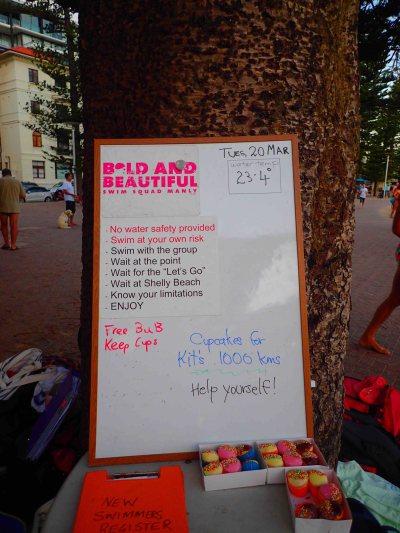 BOLD AND
BEAUTIFUL
SWIM SQUAD MANLY
TUES 20 MAR
water temp
23.4°
- No water safety provided
- Swim at your own risk
- Swim with the group
- Wait at the point
- Wait for the "Let's Go"
- Wait at Shelly Beach
- Know your limitations
- ENJOY
Free BuB
Keep Cups
Cupcakes for
Kit's 1000 kms
Help yourself!
NEW
SWIMMERS
REGISTER